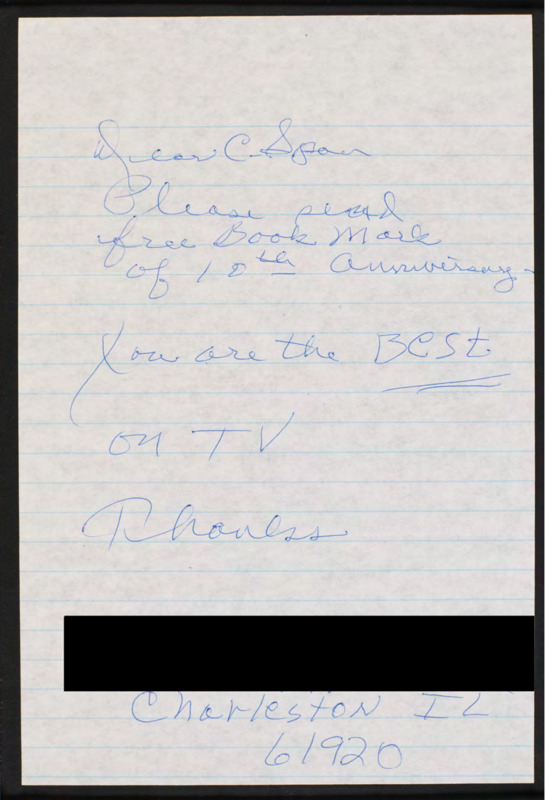 Dear C. Span
Please send
free Book Mark
of 10th Anniversary
You are the BEST
on TV
Thanks
Charleston IL
61920